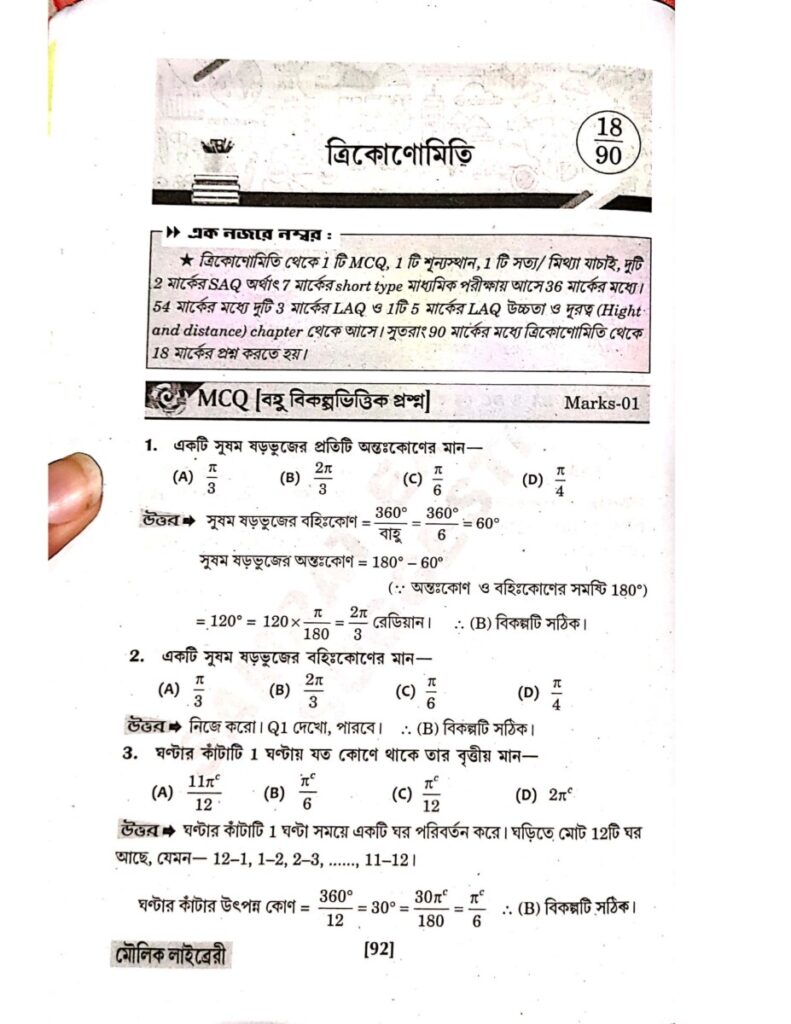 ত্রিকোণোমিতি
18/90
এক নজরে নম্বর :
★ ত্রিকোণোমিতি থেকে 1 টি MCQ, 1 টি শূন্যস্থান, 1 টি সত্য/ মিথ্যা যাচাই, দুটি
2 মার্কের SAQ অর্থাৎ 7 মার্কের short type মাধ্যমিক পরীক্ষায় আসে 36 মার্কের মধ্যে।
54 মার্কের মধ্যে দুটি 3 মার্কের LAQ ও 1টি 5 মার্কের LAQ উচ্চতা ও দূরত্ব (Hight
and distance) chapter থেকে আসে। সুতরাং 90 মার্কের মধ্যে ত্রিকোণোমিতি থেকে
18 মার্কের প্রশ্ন করতে হয়।
MCQ [বহু বিকল্পভিত্তিক প্রশ্ন] Marks-01
1. একটি সুষম ষড়ভুজের প্রতিটি অন্তঃকোণের মান—
(A) π/3 (B) 2π/3 (C) π/6 (D) π/4
উত্তর ➡ সুষম ষড়ভুজের বহিঃকোণ = 360°/বাহু = 360°/6 = 60°
সুষম ষড়ভুজের অন্তঃকোণ = 180° – 60°
(∵ অন্তঃকোণ ও বহিঃকোণের সমষ্টি 180°)
= 120° = 120 × π/180 = 2π/3 রেডিয়ান। ∴ (B) বিকল্পটি সঠিক।
2. একটি সুষম ষড়ভুজের বহিঃকোণের মান—
(A) π/3 (B) 2π/3 (C) π/6 (D) π/4
উত্তর ➡ নিজে করো। Q1 দেখো, পারবে। ∴ (B) বিকল্পটি সঠিক।
3. ঘণ্টার কাঁটাটি 1 ঘণ্টায় যত কোণে থাকে তার বৃত্তীয় মান—
(A) 11πᶜ/12 (B) πᶜ/6 (C) πᶜ/12 (D) 2πᶜ
উত্তর ➡ ঘণ্টার কাঁটাটি 1 ঘণ্টা সময়ে একটি ঘর পরিবর্তন করে। ঘড়িতে মোট 12টি ঘর
আছে, যেমন— 12–1, 1–2, 2–3, ......, 11–12।
ঘণ্টার কাঁটার উৎপন্ন কোণ = 360°/12 = 30° = 30πᶜ/180 = πᶜ/6 ∴ (B) বিকল্পটি সঠিক।
মৌলিক লাইব্রেরী [92]